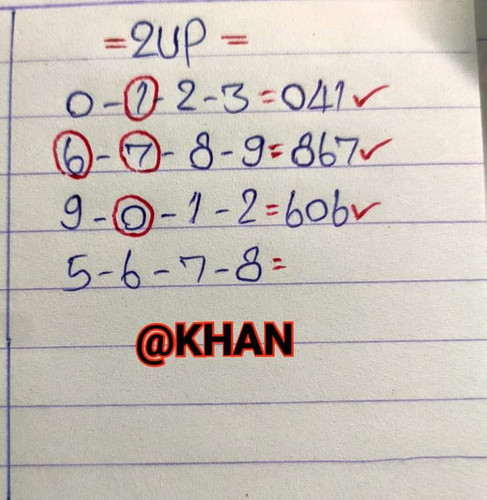 =2UP=
0-1-2-3=041✓
6-7-8-9=867✓
9-0-1-2=606✓
5-6-7-8=
@KHAN